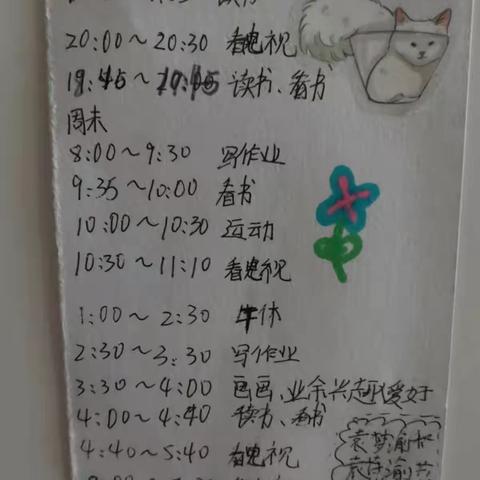 20:00～20:30 看电视
19:45～20:45 读书、看书
周末
8:00～9:30 写作业
9:35～10:00 看书
10:00～10:30 运动
10:30～11:10 看电视
1:00～2:30 午休
2:30～3:30 写作业
3:30～4:00 画画,业余兴趣爱好
4:00～4:40 读书、看书
4:40～5:40 看电视
袁梦渝
袁梦渝